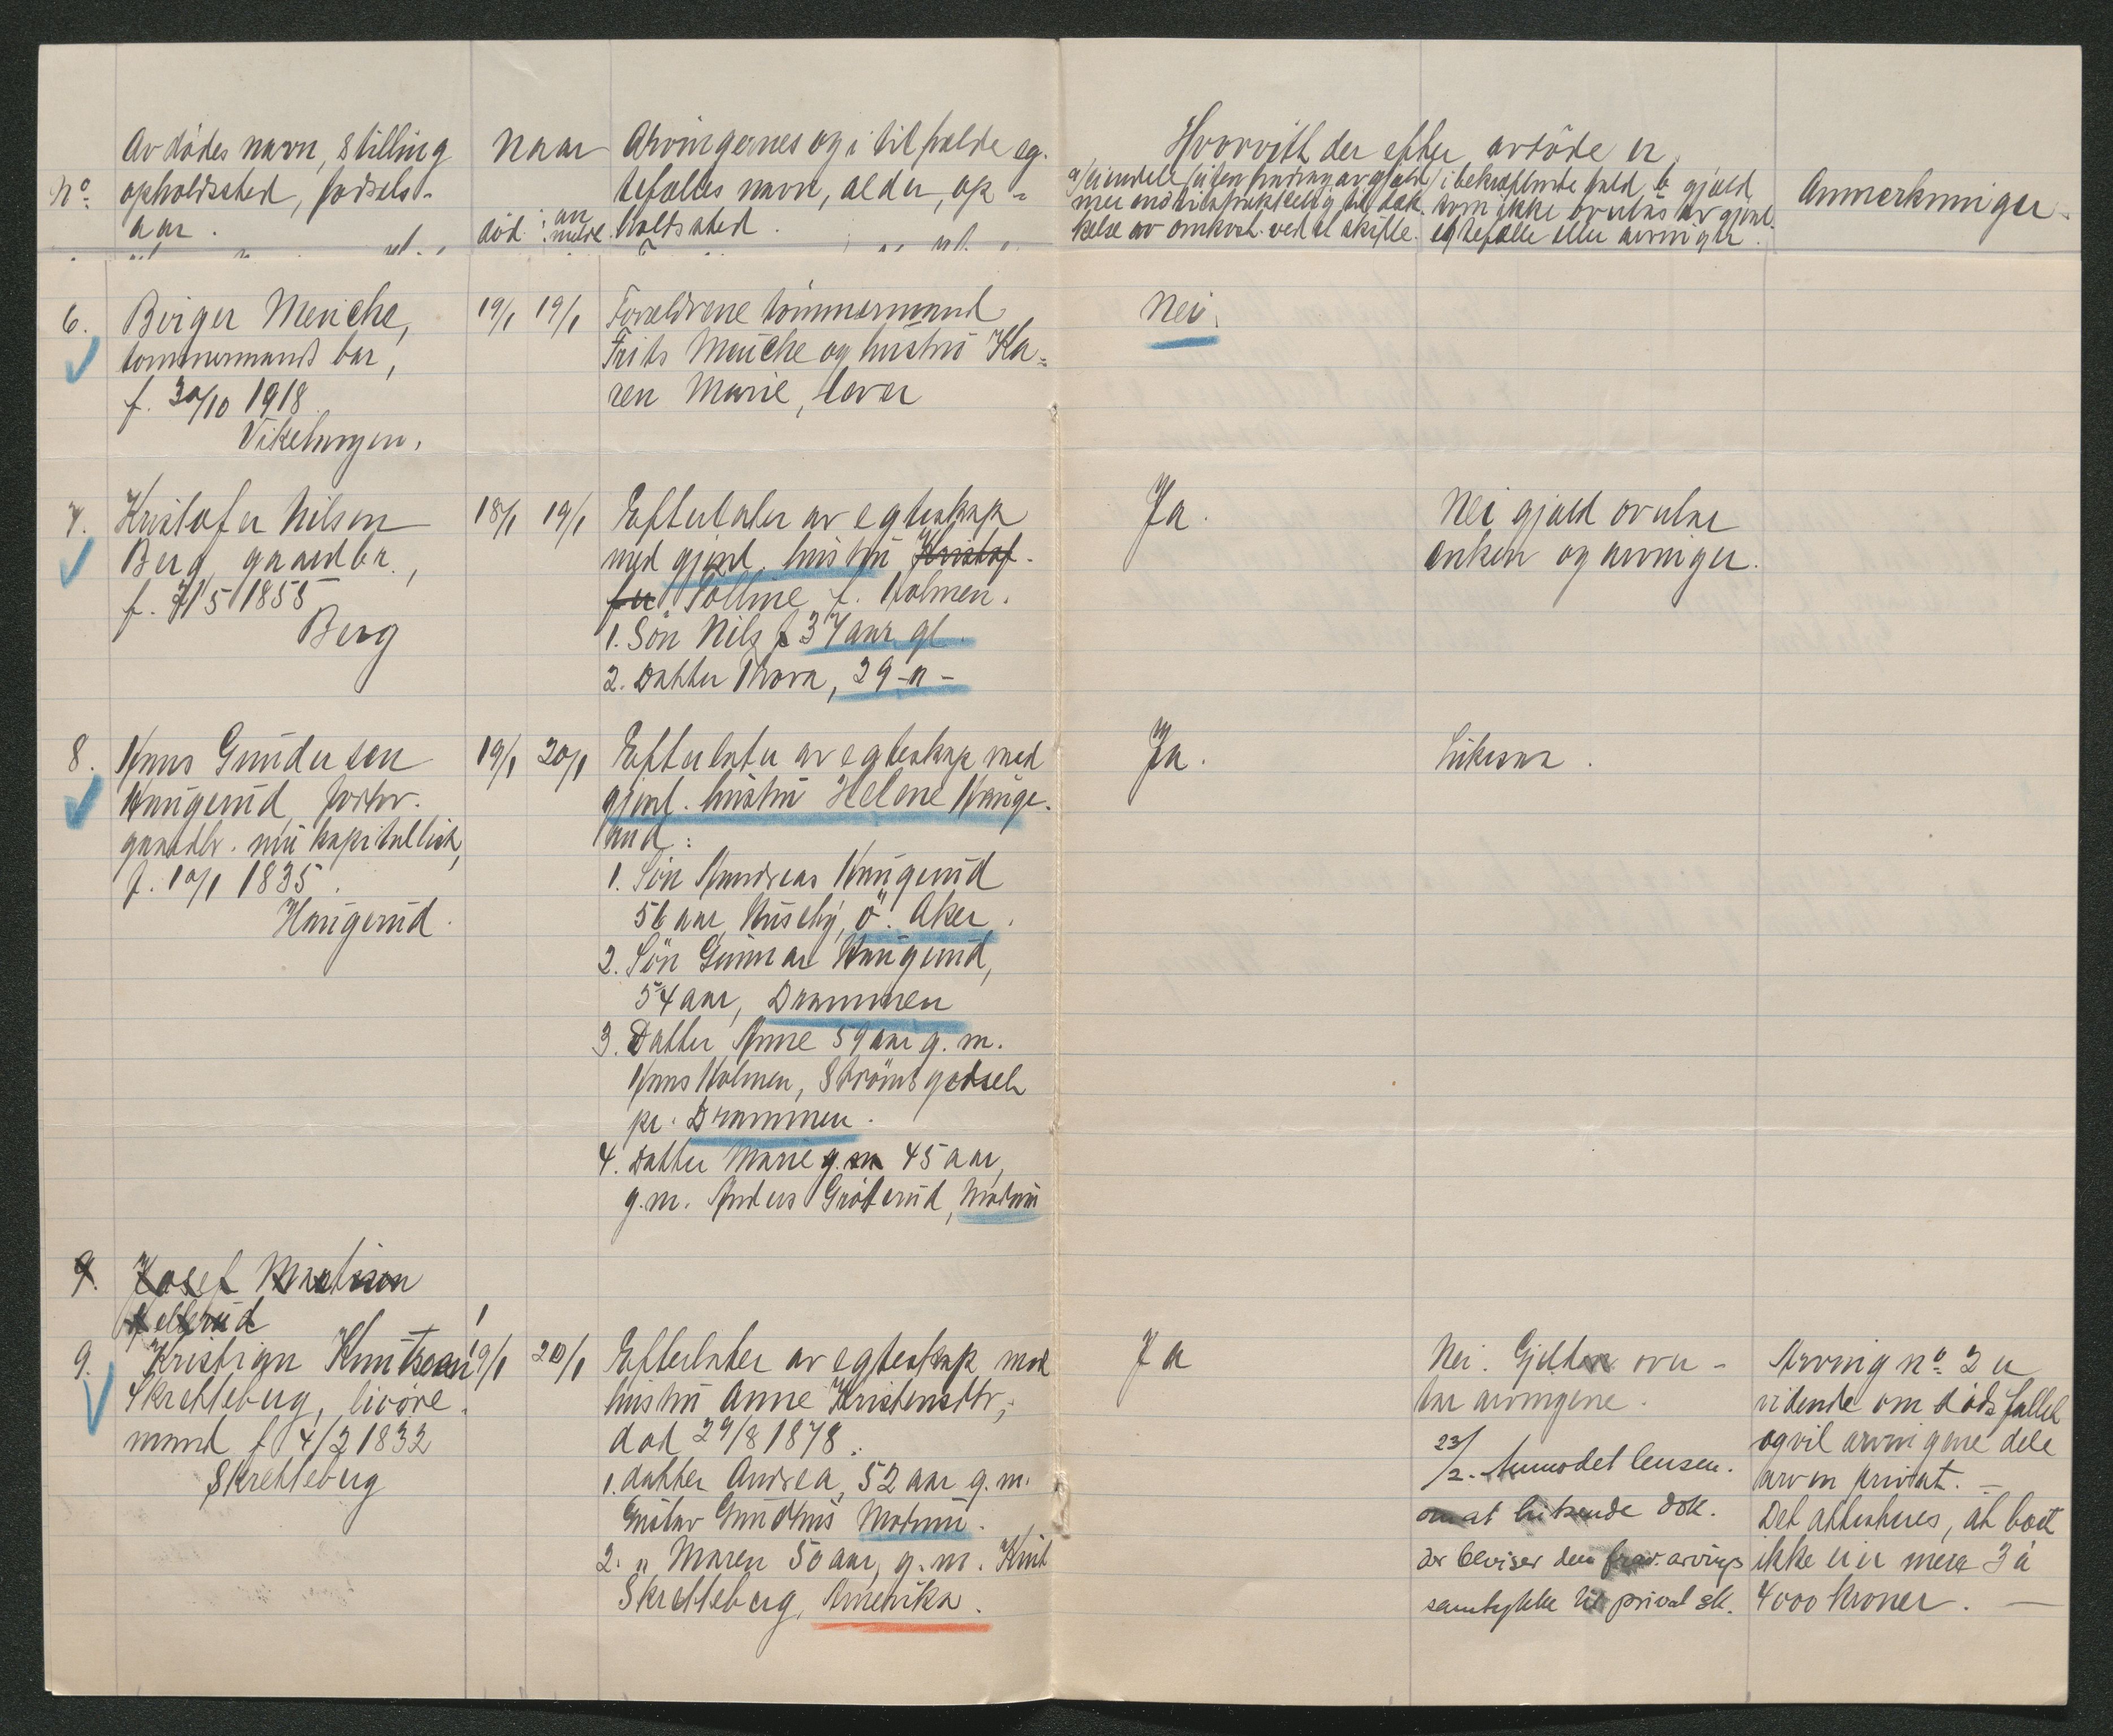 No.
Avdødes navn, stilling
opholdssted, fødsels-
aar.
Naar
død. an meldt.
Arvingernes og i tilfælde eg-
tefælles navn, alder, op-
holdssted.
Hvorvidt der efter avdøde er
a/ eiendele (uten fradrag av gjæld)
mer end tilstrækkelig til dæk-
kelse av omkost. ved et skifte.
i bekræftende fald, b gjæld
som ikke overtas av gjenl.
egtefælle eller arvinger.
Anmerkninger.
6. Birger Menche,
tømmermands barn,
f. 30/10 1918
Vikebergen.
19/1 19/1
Forældrene tömmermand
Frits Menche og hustru Ka-
ren Marie, lever
Nei.
7. Kristofer Nilsen
Berg gaardbr.,
f. 5 1855
Berg
18/1 19/1
Efterlater av egteskap
med gjenl. hustru Kristof-
fer Polline f. Holmen.
1. Sön Nils 37 aar gl.
2. Datter Thora, 29 -"-
Ja.
Nei gjæld overtar
enken og arvinger.
8. Hans Gundersen
Haugerud forhv.
gaardbr. nu kapitallist,
f. 10/1 1835.
Haugerud.
19/1 20/1
Efterlater av egteskap med
gjenl. hustru Helene Hauge-
rud:
1. Sön Andreas Haugerud
56 aar, Huseby, ö. Aker.
2. Sön Gunnar Haugerud,
54 aar, Drammen
3. Datter Anne 59 aar g. m.
Hans Holmen, Strömsgodset
pr. Drammen.
4. Datter Marie g. m 45 aar,
g.m. Anders Gröterud, Modum
Ja.
Likesaa.
9. Josef Martisen
9. Kristian Knutsen
Skretteberg, livöre-
mand f 4/2 1832
Skretteberg
19/1 20/1
Efterlater av egteskap med
hustru Anne Kristensdtr,
död 29/8 1878.
1. datter Andrea, 52 aar g.m.
Gustav Gundhus Modum.
2. " Maren 50 aar, g. m. Knut
Skretteberg, Amerika.
Ja
Nei. Gjelden over-
tar arvingene.
23/2. Anmodet lensm.
om at indsende dok.
der beviser den frav. arvings
samtykke til privat sk.
Arving no. 2 er
vidende om dödsfallet
og vil arvingene dele
arven privat. -
Det attesteres, at boet
ikke eier mere 3 à
4000 kroner. -